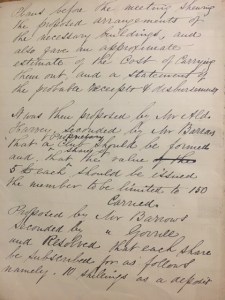 Plans before the meeting shewing
the proposed arrangements of
the necessary buildings, and
also gave an approximate
estimate of the Cost of Carrying
them out, and a Statement of
the probable receipts & disbursements
It was then proposed by Mr Ald.
seconded by Mr Barrows
Proprietary
that a Club should be formed
Shares
and that the value of the
5 £ each should be issued
the member to be limited to 150
Carried.
Proposed by Mr Barrows
Seconded by "
and Resolved that each share
be subscribed for as follows
namely. 10 shillings as a deposit